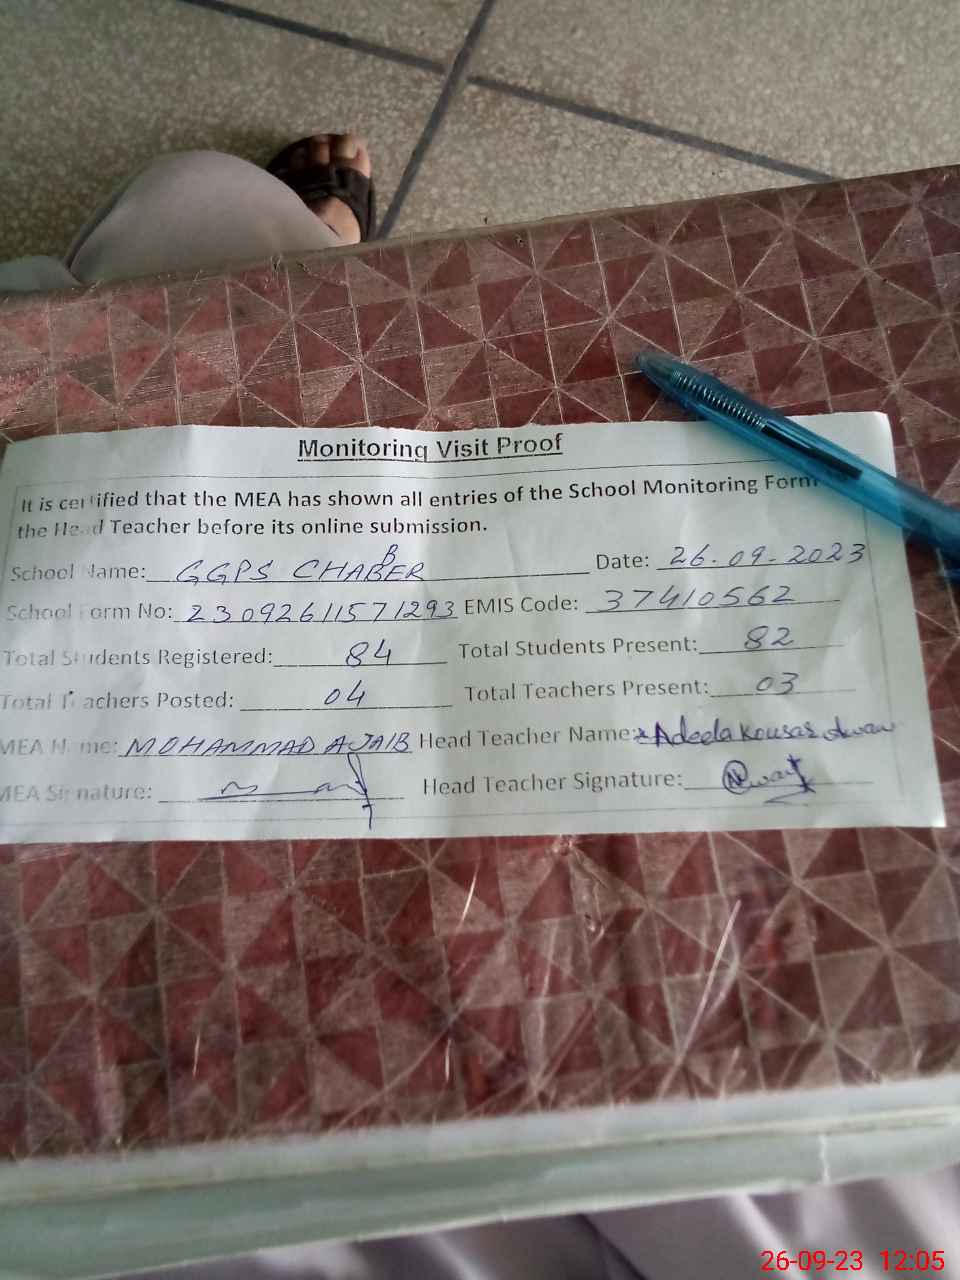 Monitoring Visit Proof
It is certified that the MEA has shown all entries of the School Monitoring Form
the Head Teacher before its online submission.
School Name: GGPS CHABBER Date: 26.09.2023
School Form No: 23092611571293 EMIS Code: 37410562
Total Students Registered: 84 Total Students Present: 82
Total Teachers Posted: 04 Total Teachers Present: 03
MEA Name: MOHAMMAD AJAIB Head Teacher Name: Adeela Kousar Awan
MEA Signature: Head Teacher Signature:
26-09-23 12:05